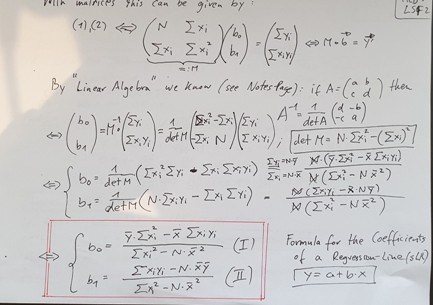 matrices this can be given by:
(1),(2) ⟺ ( N Σxi ; Σxi Σxi² ) ( b0 ; b1 ) = ( Σyi ; Σxiyi ) ⟺ M·b⃗ = y⃗
=:M
By "Linear Algebra" we know (see Notes Page): if A = ( a b ; c d ) then
A⁻¹ = 1/det A ( d -b ; -c a )
⟺ ( b0 ; b1 ) = M⁻¹ ( Σyi ; Σxiyi ) = 1/det M ( Σxi² -Σxi ; -Σxi N ) ( Σyi ; Σxiyi ) ; det M = N·Σxi² - (Σxi)²
⟺ { b0 = 1/det M ( Σxi² Σyi - Σxi Σxiyi ) Σyi = N·ȳ Σxi = N·x̄ N(ȳ·Σxi² - x̄ Σxiyi) / N(Σxi² - N x̄²)
b1 = 1/det M ( N·Σxiyi - Σxi Σyi ) = N(Σxiyi - x̄·Nȳ) / N(Σxi² - N x̄²)
⟺ { b0 = ȳ·Σxi² - x̄ Σxiyi / Σxi² - N·x̄² (I)
b1 = Σxiyi - N·x̄ȳ / Σxi² - N·x̄² (II)
Formula for the Coefficients
of a Regression-Line (SLR)
y = a+b·x